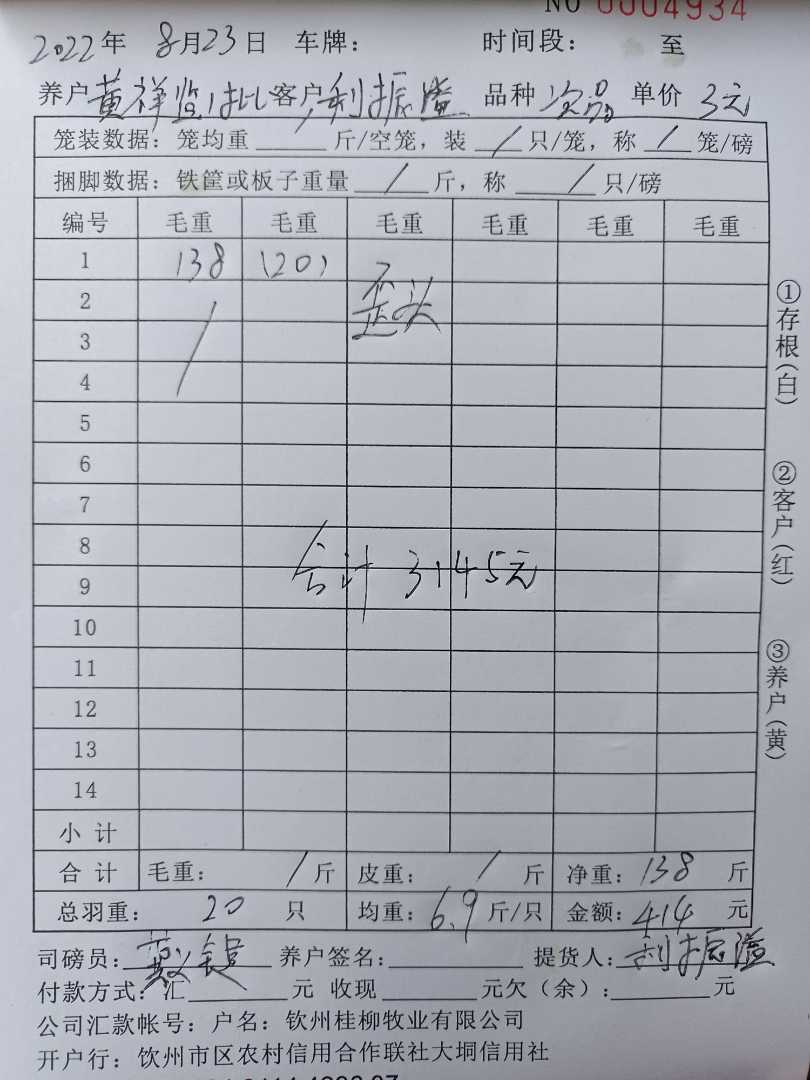 NO 0004934
2022年 8月23日 车牌： 时间段： 至
养户 黄祥监1批 客户 利振溢 品种 次品 单价 3元
笼装数据：笼均重 斤/空笼，装 / 只/笼，称 / 笼/磅
捆脚数据：铁筐或板子重量 / 斤，称 / 只/磅
编号 毛重 毛重 毛重 毛重 毛重 毛重
1 138 (20)
2 歪头
3 /
4
5
6
7
8
合计 3145元
9
10
11
12
13
14
小 计
合 计 毛重： / 斤 皮重： / 斤 净重：138 斤
总羽重： 20 只 均重：6.9 斤/只 金额：414 元
司磅员： 养户签名： 提货人：利振溢
付款方式：汇 元 收现 元欠（余）： 元
公司汇款帐号：户名：钦州桂柳牧业有限公司
开户行：钦州市区农村信用合作联社大垌信用社
①存根（白）
②客户（红）
③养户（黄）